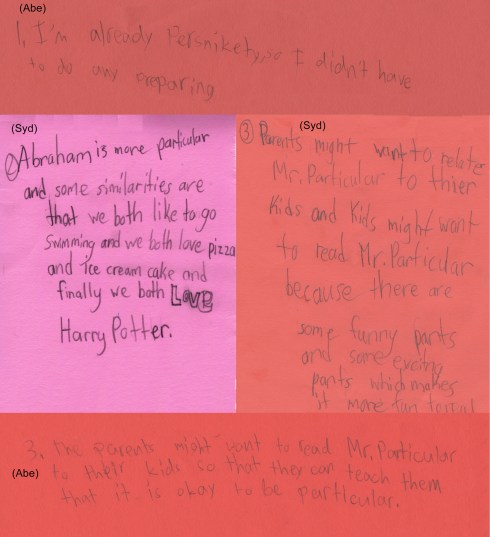 (Abe)
1, I'm already Persnikety, so I didn't have
to do any preparing
(Syd)
② Abraham is more particular
and some similarities are
that we both like to go
swimming and we both love pizza
and Ice cream cake and
finally we both LOVE
Harry Potter.
(Syd)
③ Parents might want to
Mr. Particular to thier
Kids and Kids might want
to read Mr. Particular
because there are
some funny parts
and some exciting
parts which makes
it more fun
3. The parents might want to read Mr. Particular
to their kids so that they can teach them
(Abe)
that it is okay to be particular.